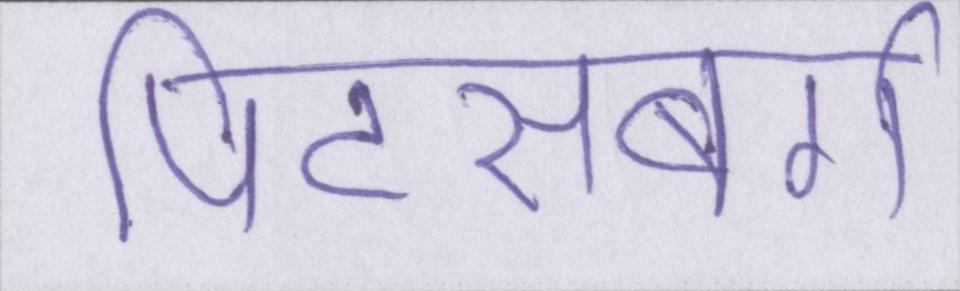 पिटसबर्ग